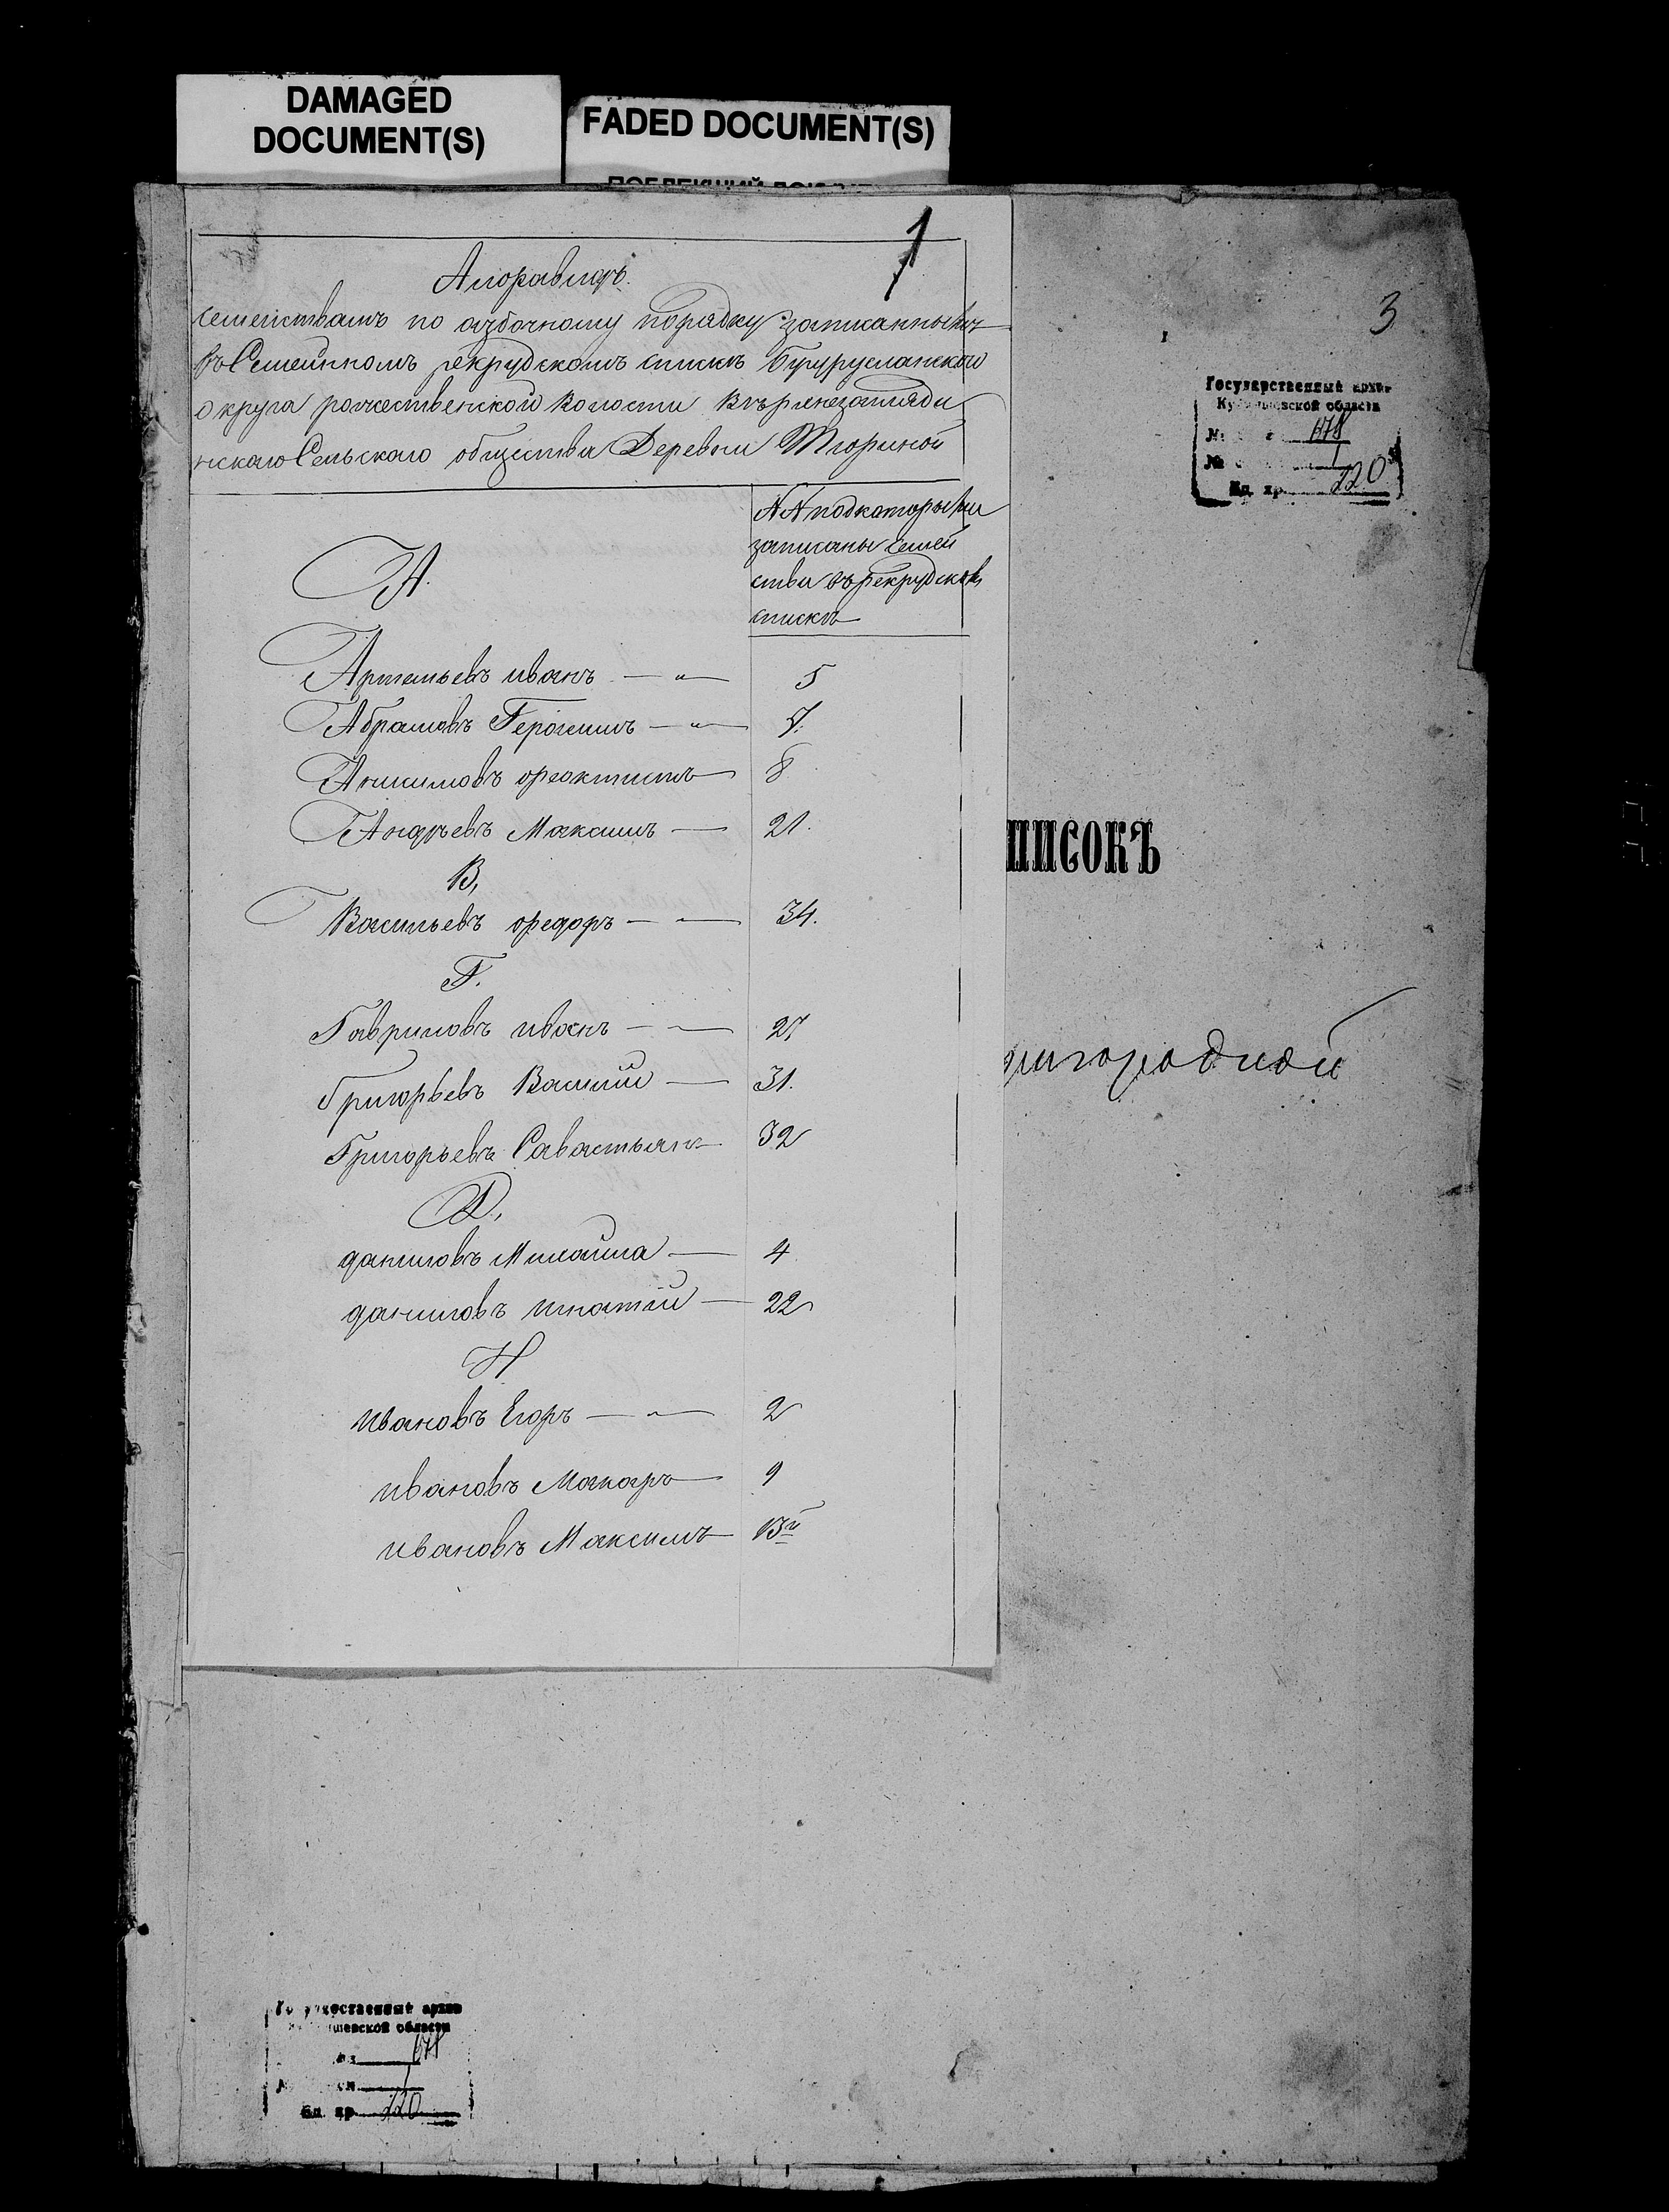 DAMAGED
DOCUMENT(S)
FADED DOCUMENT(S)
1
семействамъ по азбочному порядку записаннымъ
въ Семейномъ рекрудскомъ спискѣ Бугурусланскаго
округа рожественской волости
нскаго Сельскаго общества Деревни
№№ подкоторыми
записаны семей
ства въ рекрудскомъ
спискѣ
А.
Артемьевъ иванъ — „ — 5
Абрамовъ — „ — 7.
Анисимовъ 8
Андреевъ Максимъ — 21.
В,
Васильевъ федоръ — — 34.
Г.
Гавриловъ иванъ — — 27
Григорьевъ Василий — 31.
Григорьевъ Савастьянъ 32
Д,
даниловъ Михайла — 4
даниловъ игнатий — 22
И
ивановъ Егоръ — — 2
ивановъ Макаръ — 9
ивановъ Максимъ 13й
3
Государственный архив
Куйбышевской области
678
1
220
ПИСОКЪ
ригородной
Государственный архив
шевской области
678
1
Ед. хр. 220